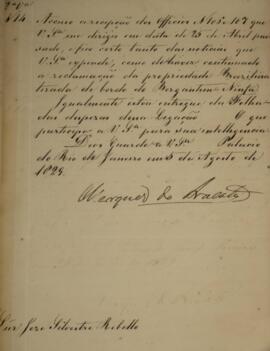 2ª Via
Nº 14
Accuso a recepção dos Officios Nºs 105 a 107 que
V. Sª me dirigio em data de 25 de Abril pas-
sado, e fico certo tanto das noticias que
V. Sª expende, como de haver continuado
a reclamação da propriedade Brazileira
tirada de bordo do Bergantim Ninfa.
Igualmente estou entregue da Folha
das despezas dessa Legação. O que
participo a V. Sª para sua intelligencia.
Deos Guarde a V. Sª Palacio
do Rio de Janeiro em 5 de Agosto de
1829.
Marquez de Aracaty
Snr. Jozé Silvestre Rebello